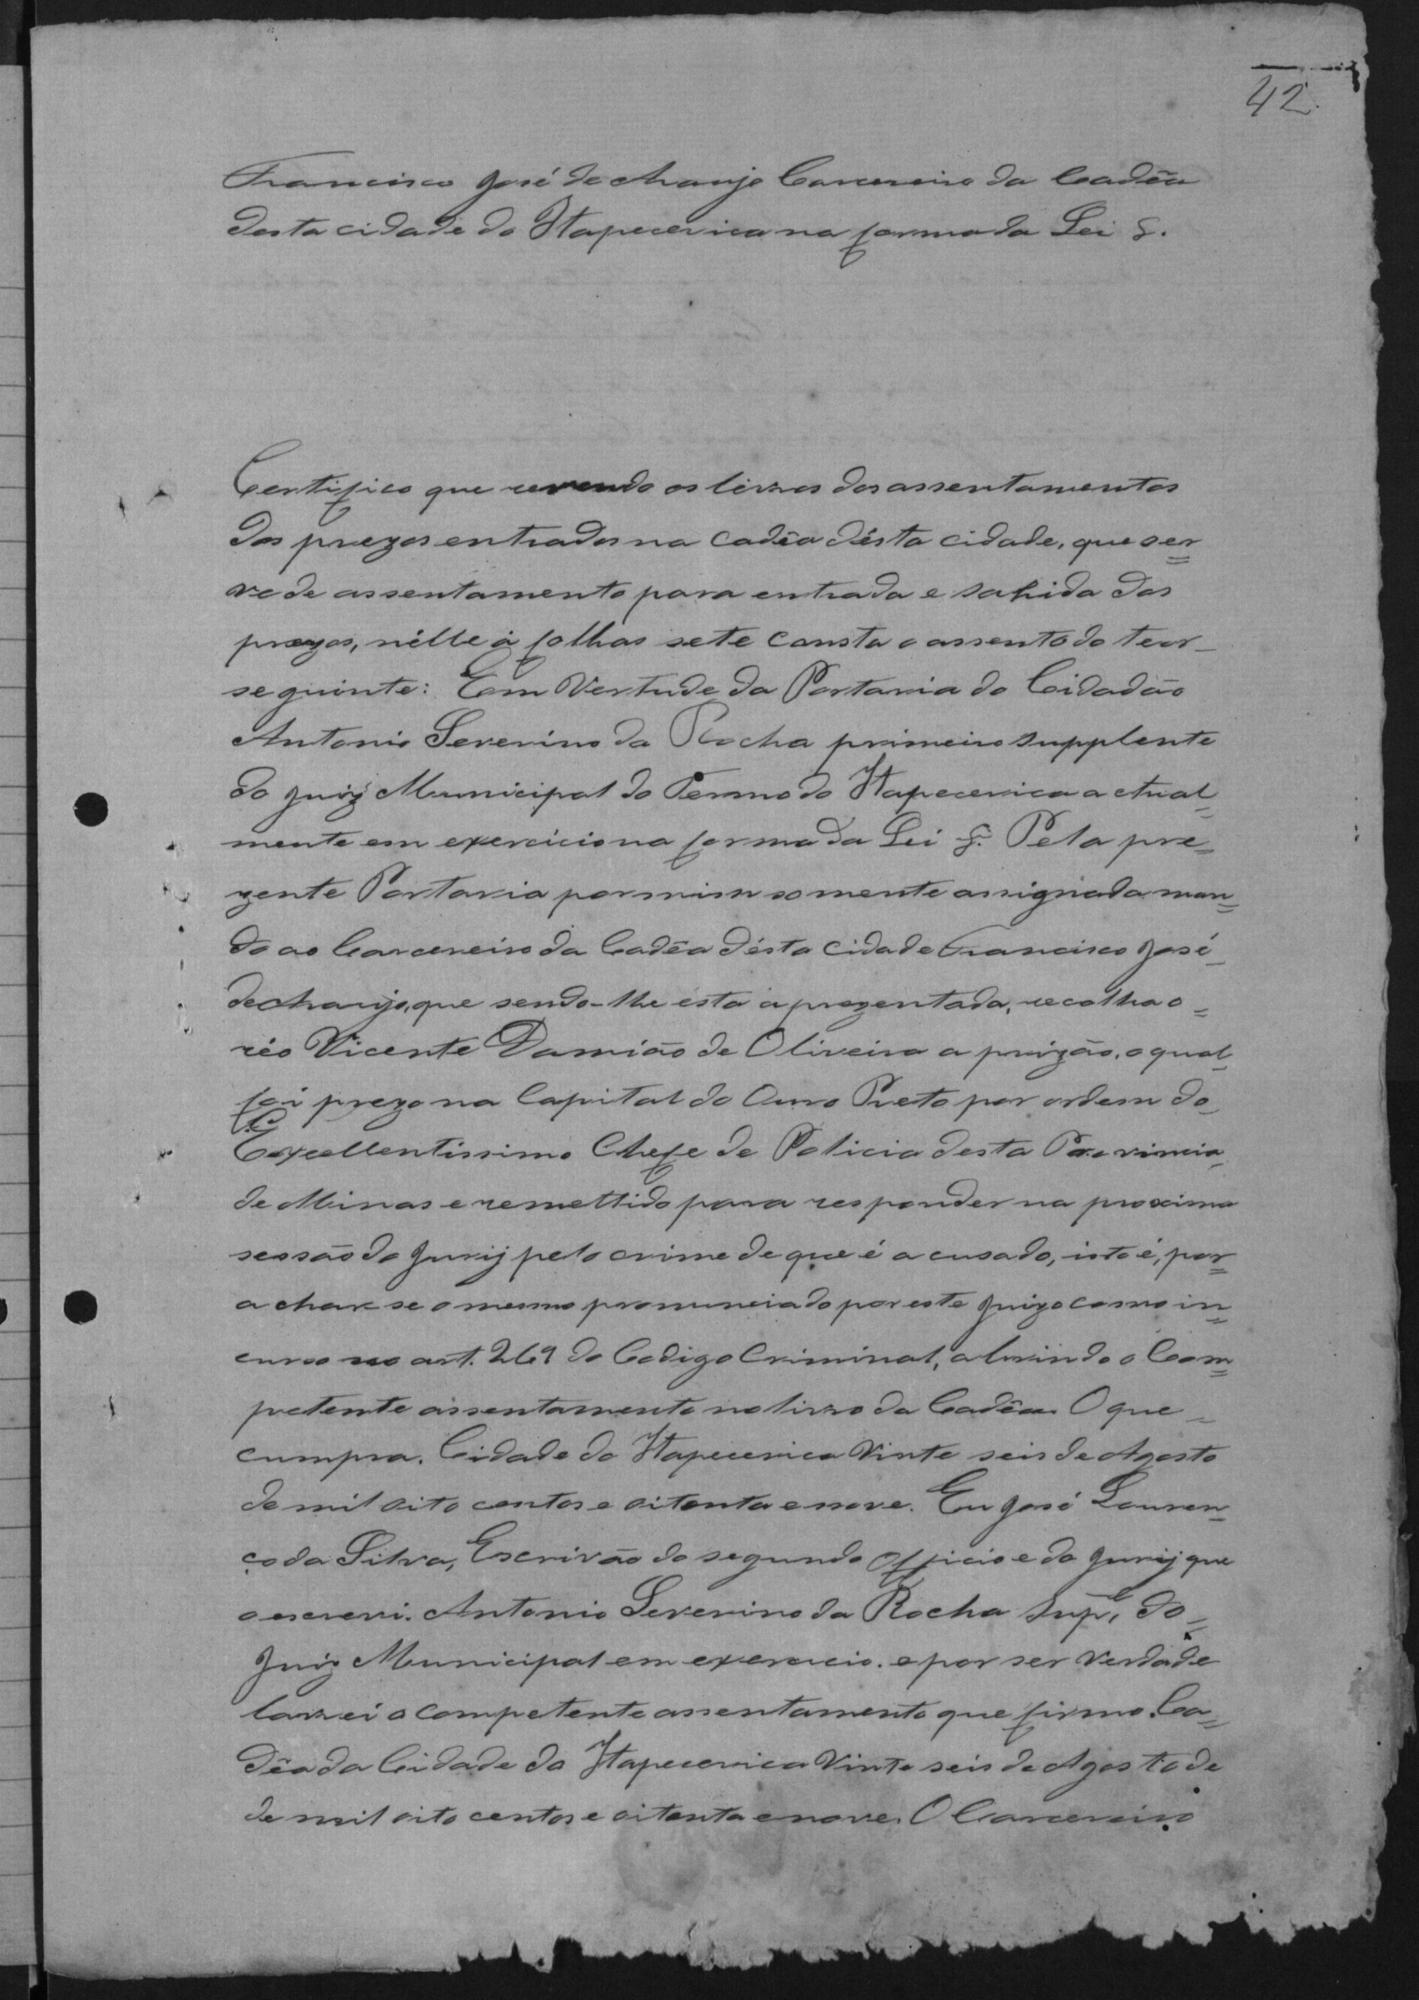 42
Francisco José de Araujo Carcereiro da Cadêa
desta cidade do Itapecerica na forma da Lei §.
Certifico que revendo os livros dos assentamentos
dos prezos entrados na cadêa désta cidade, que ser=
ve de assentamento para entrada e sahida dos
prezos, nélle á folhas sete consta o assento do teor-
seguinte: Em Vertude da Portaria do Cidadão
Antonio Severino da Rocha primeiro supplente
do Juiz Municipal do Termo do Itapecerica actual=
mente em exercicio na forma da Lei §. Pela pre=
zente Portaria por mim somente assignada man=
do ao Carcereiro da Cadêa désta cidade Francisco José-
de Araujo, que sendo-lhe esta aprezentada, recolha o=
réo Vicente Damião de Oliveira a prizão, o qual-
foi prezo na Capital do Ouro Preto por ordem do-
Excellentissimo Chefe de Policia desta Provincia-
de Minas e remettido para responder na proxima
sessão do Jurij pelo crime de que é acusado, isto é, por=
achar-se o mesmo pronunciado por este Juizo como in=
curso no art. 269 do Codigo Criminal, abrindo o Com=
petente assentamento no livro da Cadêa. O que-
cumpra. Cidade do Itapecerica Vinte seis de Agosto
de mil oito centos e oitenta e nove. Eu José Louren=
ço da Silva, Escrivão do segundo Officio e do Jurij que
o escrevi. Antonio Severino da Rocha Supe. do=
Juiz Municipal em exercicio. e por ser verdade
lavrei o competente assentamento que firmo. Ca=
dêa da Cidade do Itapecerica Vinte seis de Agosto de
de mil oito centos e oitenta e nove. O Carcereiro